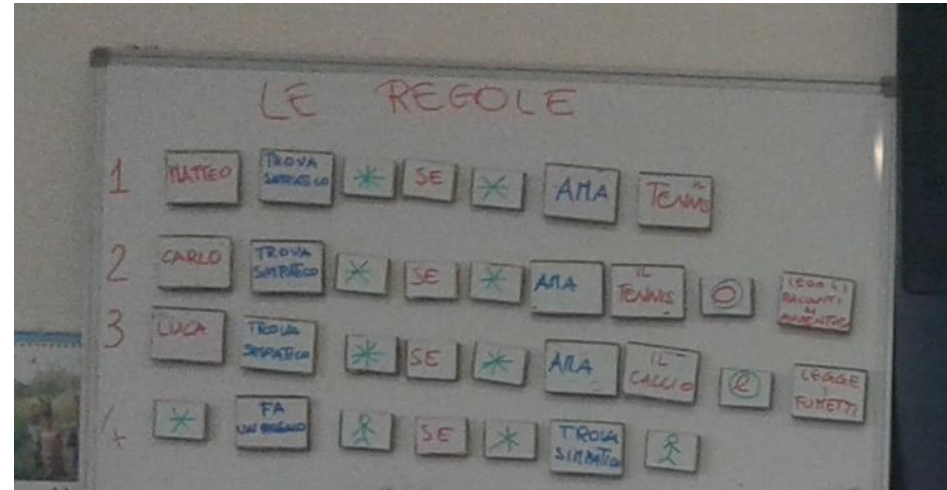 LE REGOLE
1 MATTEO TROVA SIMPATICO * SE * AMA IL TENNIS
2 CARLO TROVA SIMPATICO * SE * AMA IL TENNIS O LEGGE I RACCONTI DI AVVENTURE
3 LUCA TROVA SIMPATICO * SE * AMA IL CALCIO e LEGGE I FUMETTI
4 * FA UN REGALO SE * TROVA SIMPATICO